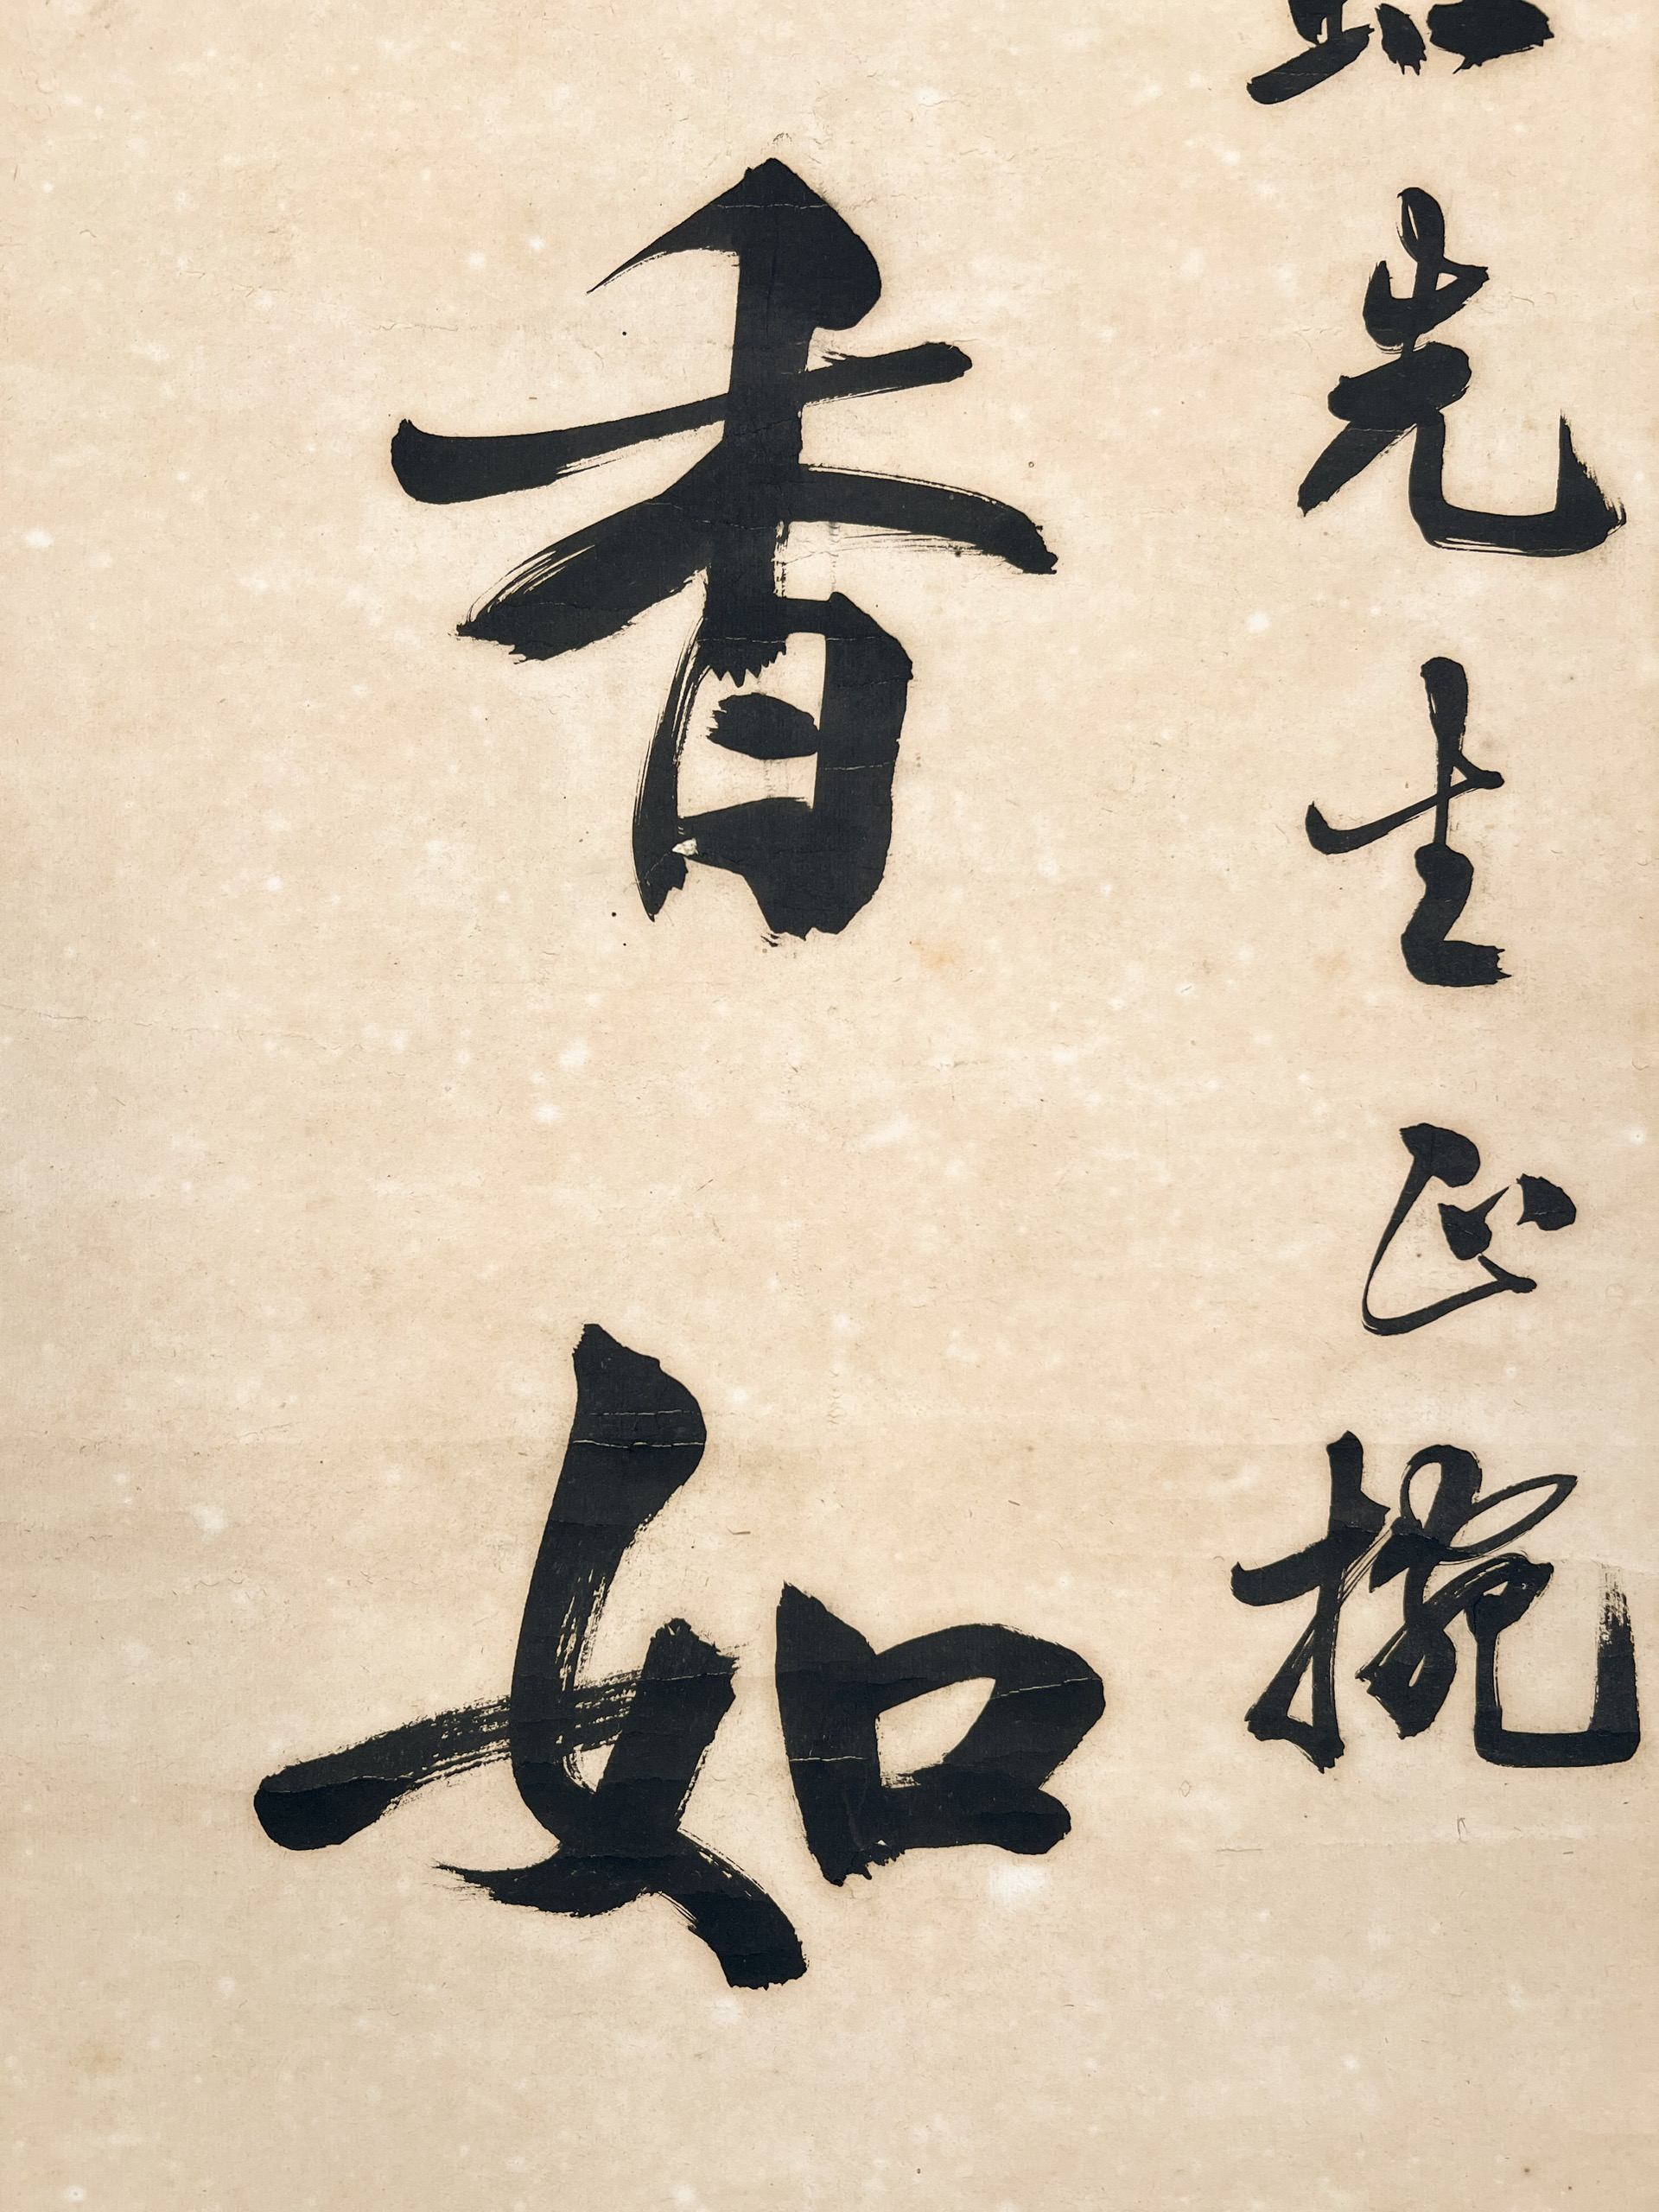 先生正捥
香如